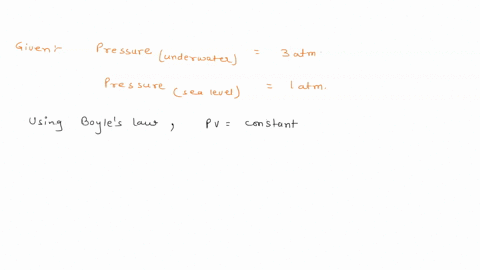 Given:- Pressure (underwater) = 3 atm.
Pressure (sea level) = 1 atm.
Using Boyle's law, PV = constant